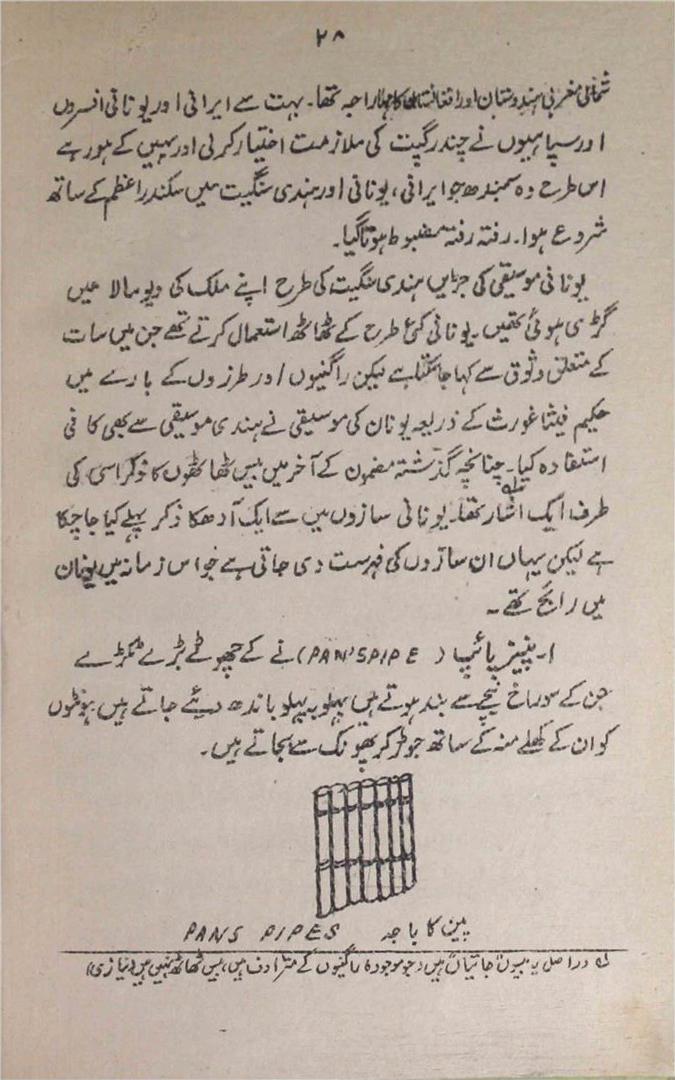 ۲۸
شمالی مغربی ہندوستان اور افغانستان کا مہاراجہ تھا۔ بہت سے ایرانی اور یونانی افسروں
اور سپاہیوں نے چندرگپت کی ملازمت اختیار کرلی اور یہیں کے ہو رہے
اس طرح وہ سمبندھ جو ایرانی، یونانی اور ہندی سنگیت میں سکندر اعظم کے ساتھ
شروع ہوا۔ رفتہ رفتہ مضبوط ہوتا گیا۔
یونانی موسیقی کی جڑیں ہندی سنگیت کی طرح اپنے ملک کی دیو مالا میں
گڑی ہوئی تھیں۔ یونانی کئی طرح کے ٹھاٹھ استعمال کرتے تھے جن میں سات
کے متعلق وثوق سے کہا جاسکتا ہے لیکن راگنیوں اور طرزوں کے بارے میں
حکیم فیثاغورث کے ذریعہ یونان کی موسیقی نے ہندی موسیقی سے بھی کافی
استفادہ کیا۔ چنانچہ گذشتہ مضمون کے آخر میں بیس ٹھاٹھوں کا ذکر اسی کی
طرف ایک اشارہ تھا۔ یونانی سازوں میں سے ایک آدھ کا ذکر پہلے کیا جا چکا
ہے لیکن یہاں ان سازوں کی فہرست دی جاتی ہے جو اس زمانہ میں یونان
میں رائج تھے۔
۱۔ پینیز پائپ (PAN'S PIPE) نے کے چھوٹے بڑے ٹکڑے
جن کے سوراخ نیچے سے بند ہوتے ہیں پہلو بہ پہلو باندھ دیئے جاتے ہیں ہونٹوں
کو ان کے کھلے منہ کے ساتھ جوڑ کر پھونک سے بجاتے ہیں۔
پین کا باجہ PANS PIPES
لہ دراصل یہ بیس جاتیاں ہیں (جو موجودہ راگنیوں کے مترادف ہیں، بیس ٹھاٹھ نہیں ہیں (نیازی)